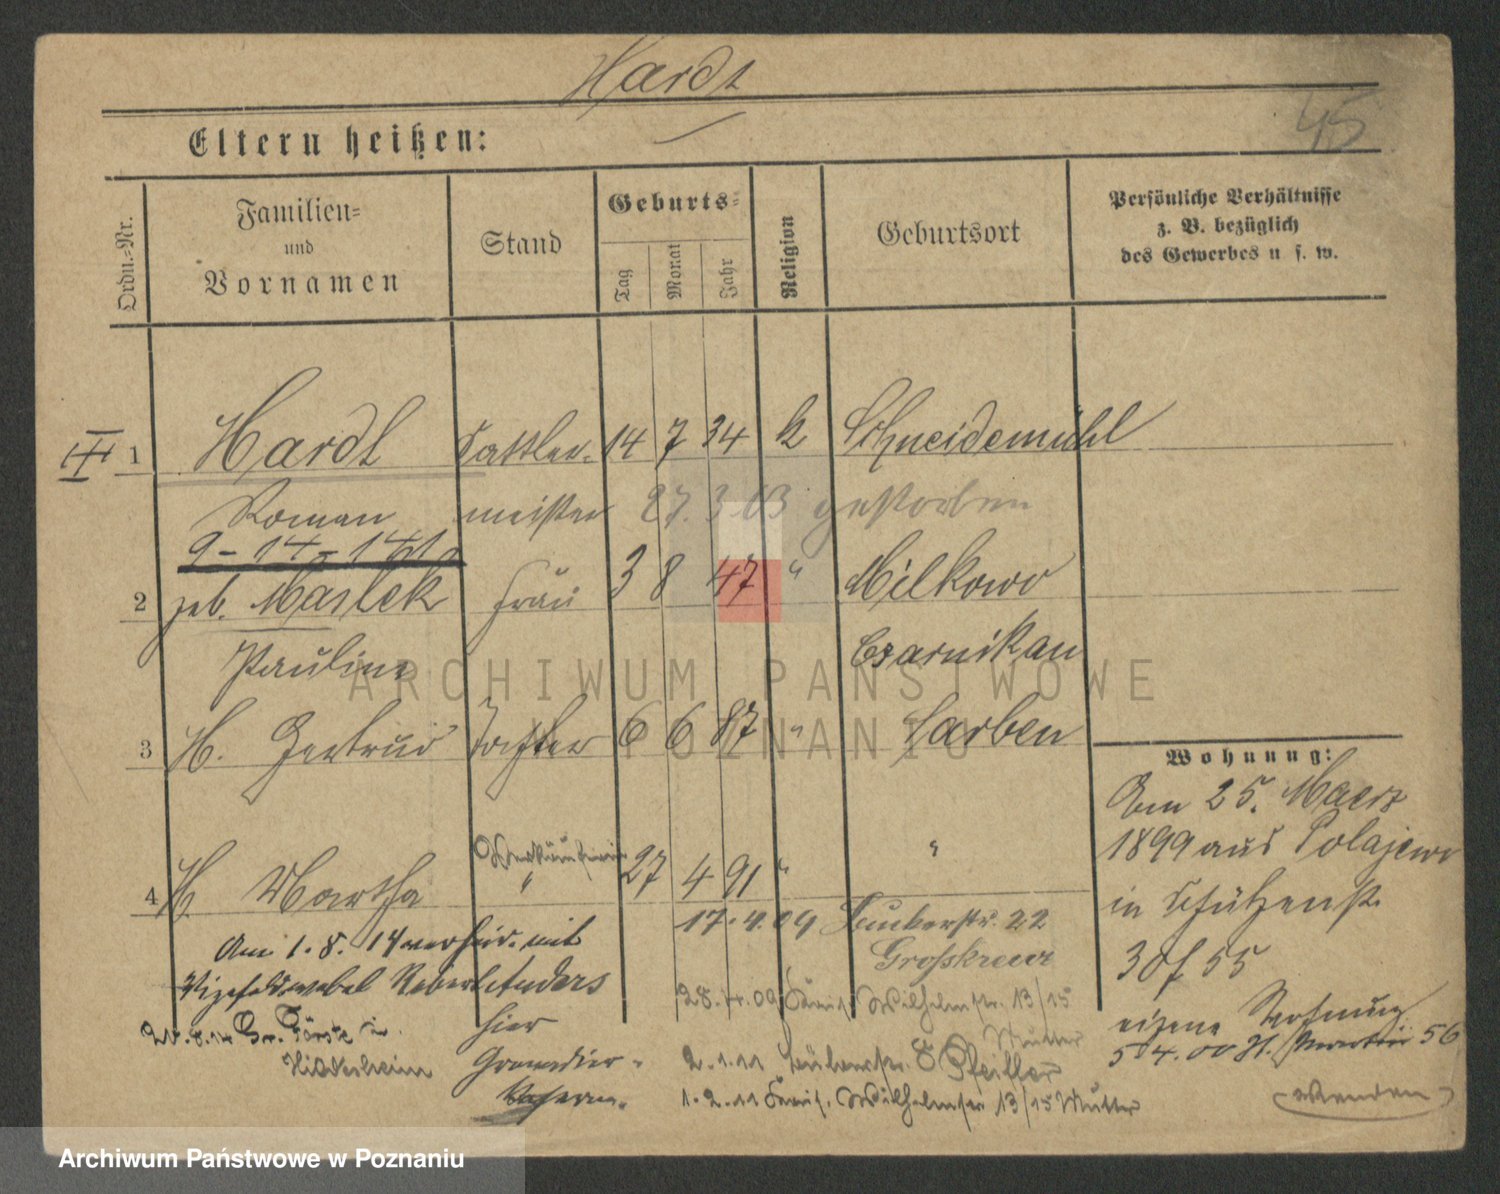 Hardt
45
Eltern heißen:
Ordn.-Nr.
Familien-
und
Vornamen
Stand
Geburts-
Tag
Monat
Jahr
Religion
Geburtsort
Persönliche Verhältnisse
z. B. bezüglich
des Gewerbes u. s. w.
III 1 Hardt Sattler- 14 7 34 k Schneidemühl
Roman meister 27. 3 03 gestorben
2 geb. Maslek Frau 3 8 47 " Milkowo
Pauline Czarnikau
3 H. Gertrud Tochter 6 6 87 " Sarben
4 H. Martha " 27 4 91 " "
Am 1. 8. 14 verheir. mit
Vizefeldwebel Robert Anders
hier
Grenadier-
Kaserne.
Hildesheim
17. 4. 09 22
Großkreuz
28. 4. 09 Kais. Wilhelmstr. 13/15
Mutter
2. 1. 11 8 Pfeiffer
1. 2. 11 Kais. Wilhelmstr. 13/15 Mutter
Wohnung:
Am 25. Maerz
1899 aus Polajewo
in Schützenstr.
30 f 55
eigene Wohnung
5 4. 00 St. Martin 56
Wenden
ARCHIWUM PAŃSTWOWE
W POZNANIU
Archiwum Państwowe w Poznaniu